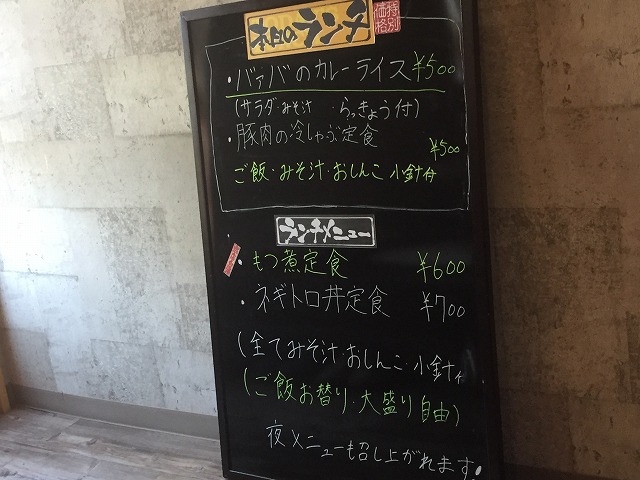 本日のランチ
特別価格
・バァバのカレーライス ¥500
(サラダ・みそ汁・らっきょう付)
・豚肉の冷しゃぶ定食 ¥500
ご飯・みそ汁・おしんこ 小針付
ランチメニュー
・もつ煮定食 ¥600
・ネギトロ丼定食 ¥700
(全てみそ汁・おしんこ・小針付
(ご飯お替り・大盛り自由)
夜メニューも召し上がれます。